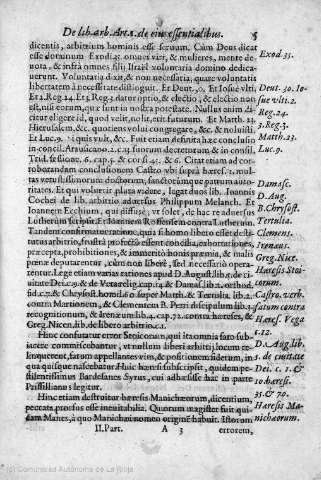 De lib. arb. Art. 1. de eius essentialibus. 5
dicentis, arbitrium hominis esse seruum. Cùm Deus dicat
esse dotatum Exod. 35. omnes viri, & mulieres, mente de-
uota, & infra omnes filij Israel voluntaria domino dedica-
uerunt. Voluntaria dixit, & non necessaria, quare voluntatis
libertatem à necessitate distinguit. Et Deut. 30. Et Iosue vlti.
Et 2. Reg. 24. Et 3. Reg. 3 datur optio, & electio, & electio non
est, nisi eorum, quæ sunt in nostra potestate. Nullus enim di-
citur eligere id, quod velit, nolit, erit futurum. Et Matth. 23.
Hierusalem, &c. quoties volui congregare, &c. & noluisti.
Et Luc. 9. si quis vult, &c. Fuit etiam definita hæc conclusio
in concil. Arausicano. 2. c. 25. suorum decretorum, & in consi.
Trid. sessione. 6. cap. 5. & corsi. 4. & 6. Citat etiam ad cor-
roborandam conclusionem Castro vbi suprà hæres. 1. mul-
tas vetustissimorum doctorum, sanctorumque patrum auto-
ritates. Et qui voluerit plura videre, legat duos lib. Ioannis
Coclei de lib. arbitrio aduersus Philippum Melanch. Et
Ioannem Ecchium, qui disputat, vt refert, de hac re aduersus
Lutherum scripsit. Et Ioannem Roffensem contra Lutherum.
Tandem confirmatur ratione, quia si homo libero esset desti-
tutus arbitrio, frustrà profectò essent concilia, exhortationes,
præcepta, prohibitiones, & immeritò bonis præmia, & malis
pœnæ deputarentur, cùm non liberè, sed à necessario opera-
rentur. Lege etiam varias rationes apud D. August. lib. 5. de ci-
uitate Dei c. 9. & de Vera relig. cap. 14 & Damas. lib. 2. orthod.
fid. c. 7. & Chrysost. homil. 60 super Matth. & Tertulia. lib. 2.
contra Martionem, & Clementem B. Petri discipulum lib. 3.
recognitionum, & Irenæum lib. 4. cap. 72. contra hæreses, &
Greg. Nicen. lib. de libero arbitrio c. 1.
Hinc confutatur error Stoicorum, qui ita omnia fato sub-
iacere confirmabant, vt nullum liberi arbitrij locum re-
linquerent, fatum appellantes vim, & positionem siderum, in
qua quisque nascebatur. Huic hæresi subscripsit, quidem pe-
stilentissimus Bardesanes Syrus, cui adhæsisse hac in parte
Priscillianus legitur.
Hinc etiam destruitur hæresis Manichæorum, dicentium,
peccata prorsus esse ineuitabilia. Quorum magister fuit qui-
dam Manes, à quo Manichæi nomen originē habuit. Istorum
II. Part. A 3 errorem,
Exod. 35.
Deut. 30. Io-
sue vlti. 2.
Reg. 24.
3. Reg. 3.
Matth. 23.
Luc. 9.
Damasc.
D. Aug.
B. Chrysost.
Tertulia.
Clemens.
Irenæus.
Greg. Nice.
Hæresis Stoi-
corum.
Castro. verb.
fatum contra
Hæres. Vega
D. Aug. lib.
5. de ciuitate
Dei. c. 1. &
10 hæres.
35. & 70.
Hæresis Ma-
nichæorum.
(c) Comunidad Autónoma de La Rioja